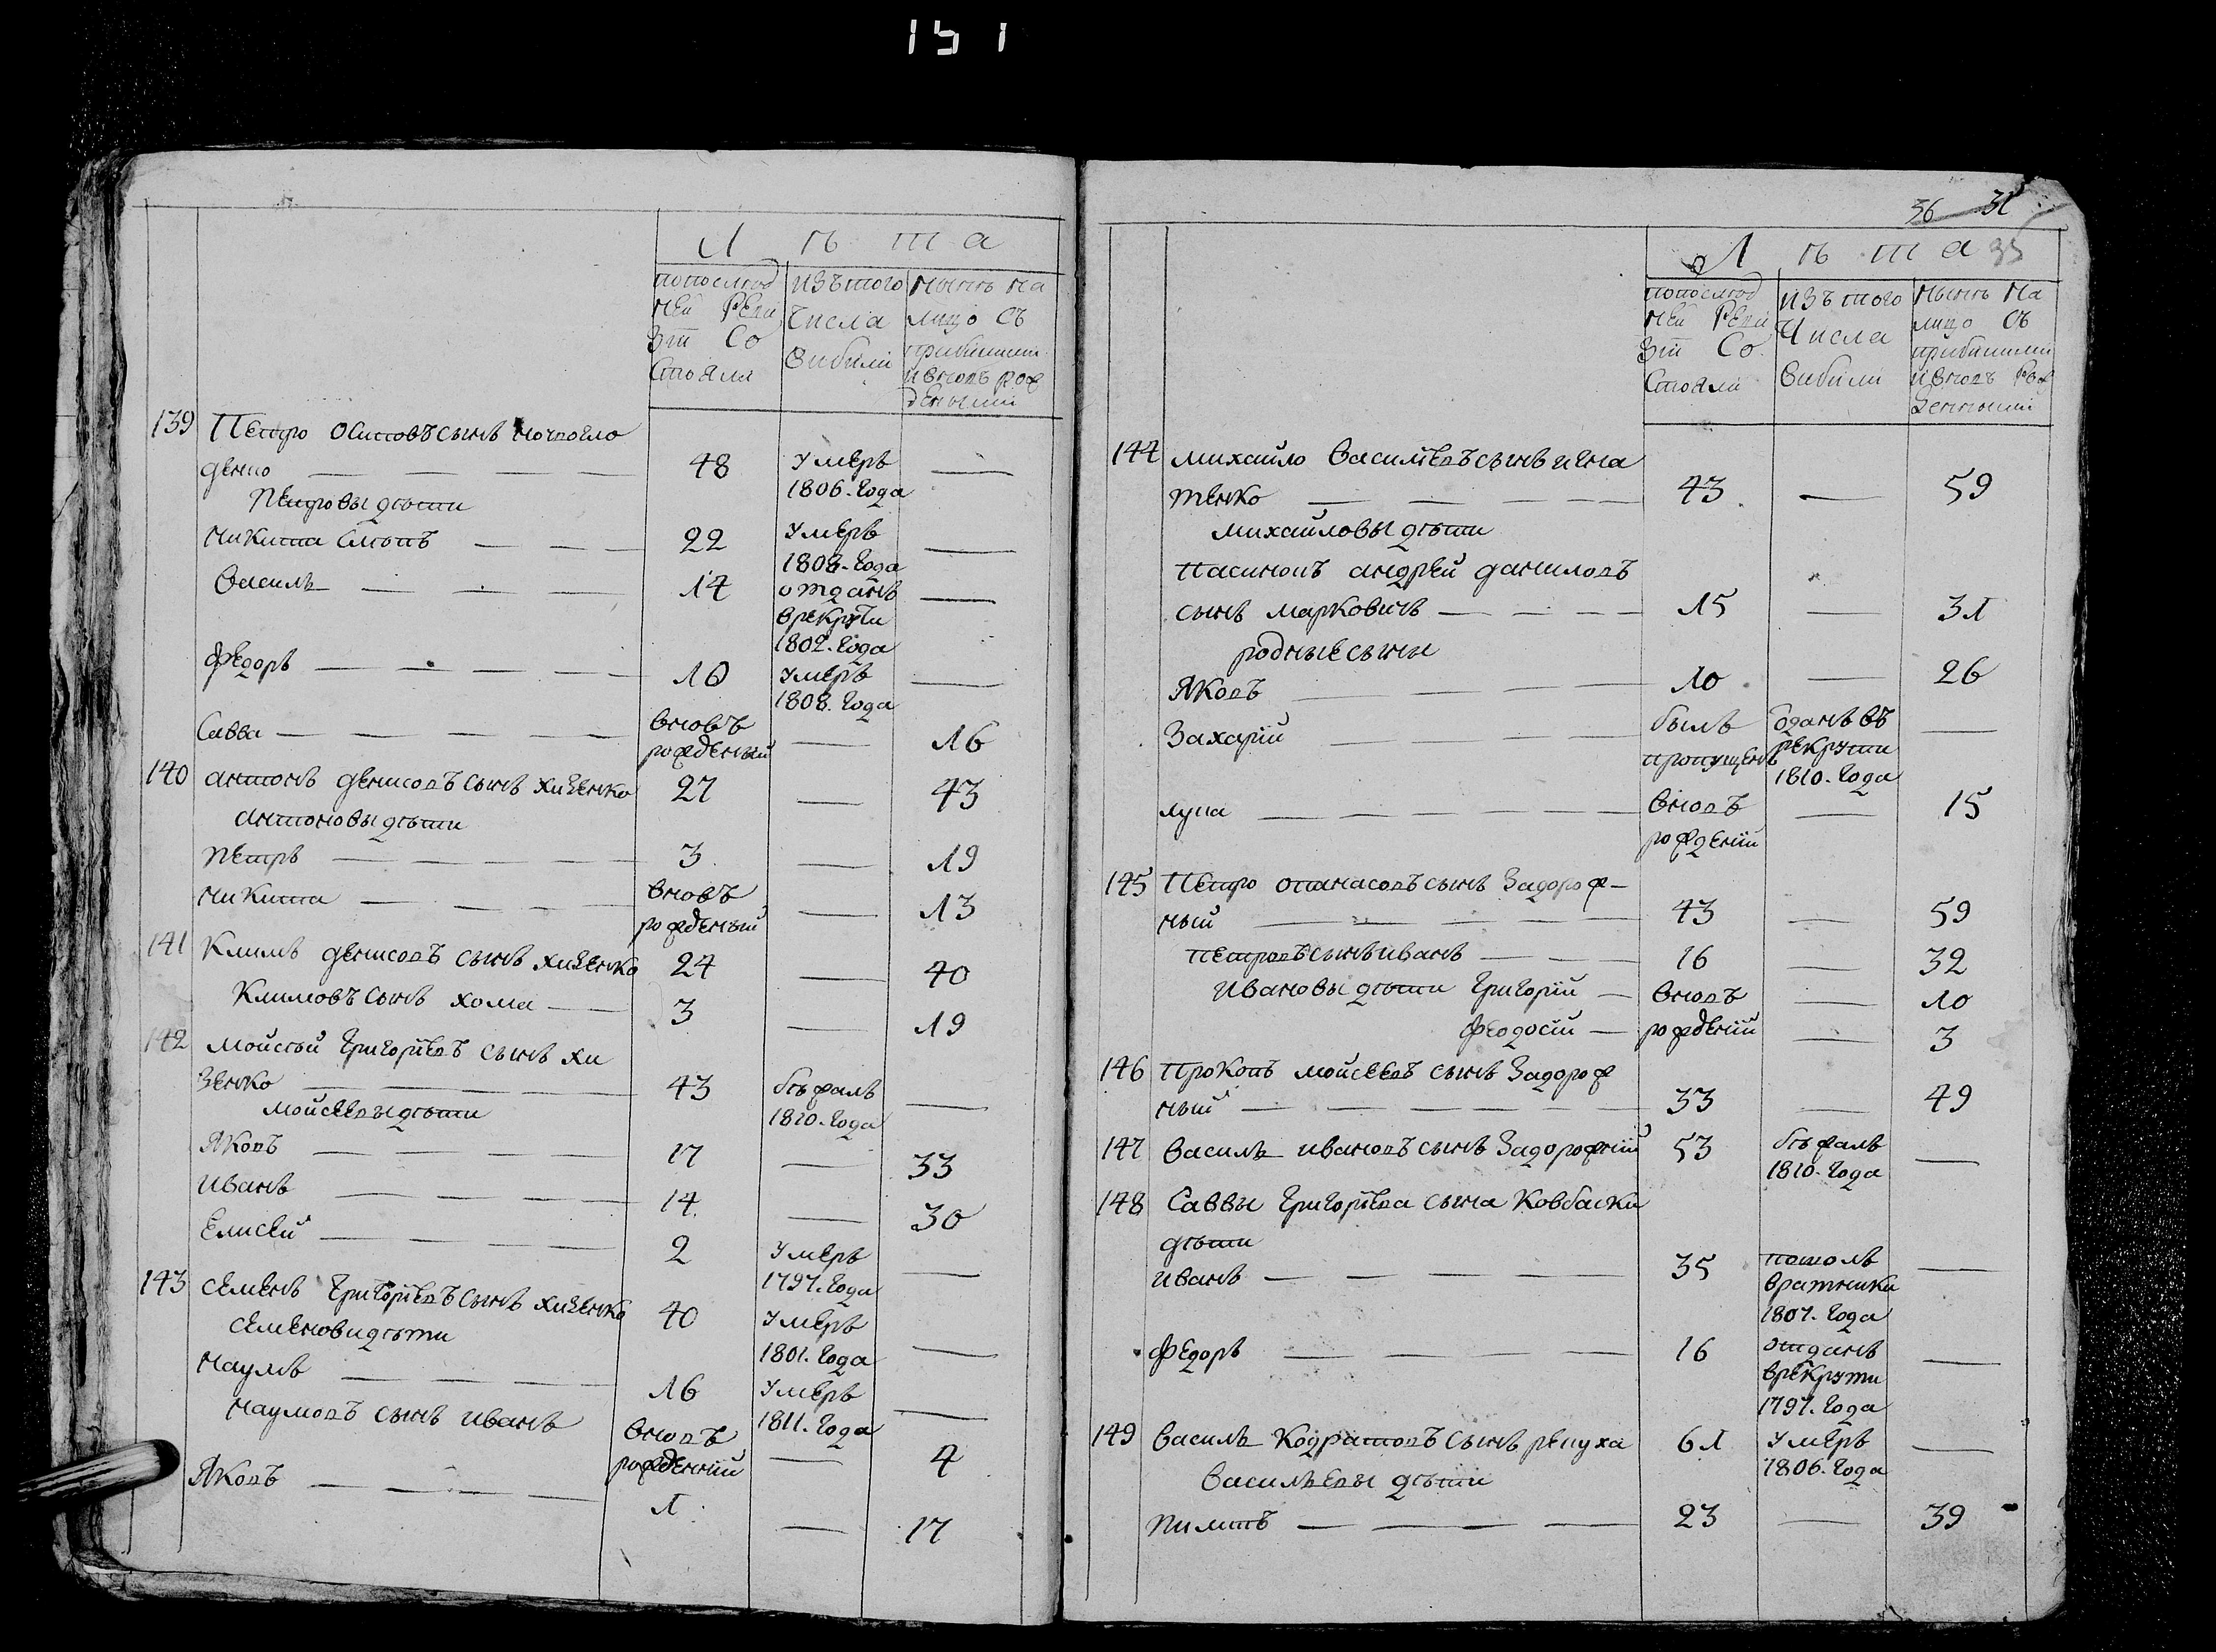 151
Лѣта
попослѣд ней Реви зіи Со стояли
изътого числа выбыли
нынѣ на лицо съ прибылыми и вновь рож денными
139 Петро Осиповъ сынъ
денко — 48 умеръ 1806. года —
Петровы дѣти
Никита — 22 умеръ 1808. года —
Василь — 14 отданъ врекруты 1802. года —
Федоръ — 10 умеръ 1808. года —
Савва — вновь рожденый — 16
140 антонъ денисовъ сынъ хизенко 27 — 43
антоновы дѣти
Петръ — 3 — 19
Никита — вновь рожденый — 13
141 Климъ денисовъ сынъ хизенко 24 — 40
Климовъ сынъ хома — 3 — 19
142 мойсѣй Григоріевъ сынъ хи
зенко — 43 бѣжалъ 1810. года —
мойсеевы дѣти
Яковъ — 17 — 33
иванъ — 14. — 30
Елисей — 2 умеръ 1797. года —
143 семенъ Григоріевъ сынъ хизенко 40 умеръ 1801. года —
семеновы дѣти
Наумъ — 16 умеръ 1811. года —
наумовъ сынъ иванъ вновь рожденній — 4
Яковъ — 1. — 17
36 35
Лѣта
попослѣд ней Реви зіи Со стояли
изътого числа выбыли
нынѣ на лицо съ прибылыми и вновь рож денными
144 михайло Василіевъ сынъ игна
тенко — 43. — 59
михайловы дѣти
пасинокъ андрей даниловъ
сынъ марковичъ — 15 — 31
родные сыны
Яковъ — 10 — 26
Захарій — былъ пропущенъ оданъ въ рекруты 1810. года —
лука — вновь рожденій — 15
145 Петро опанасовъ сынъ Задорож-
ный — 43 — 59
петровъ сынъ иванъ — 16 — 32
ивановы дѣти Григорій — вновь — 10
Феодосій — рожденій — 3
146 прокопъ мойсеевъ сынъ Задорож
ный — 33 — 49
147 василь ивановъ сынъ Задорожній 53 бѣжалъ 1810. года —
148 Саввы Григоріева сына Ковбаски
дѣти
иванъ — 35 пошолъ вратники 1807. года —
Федоръ — 16 отданъ врекруты 1797. года —
149 василь Кодратовъ сынъ репуха 61 умеръ 1806. года —
васильевы дѣти
Пилипъ — 23 — 39